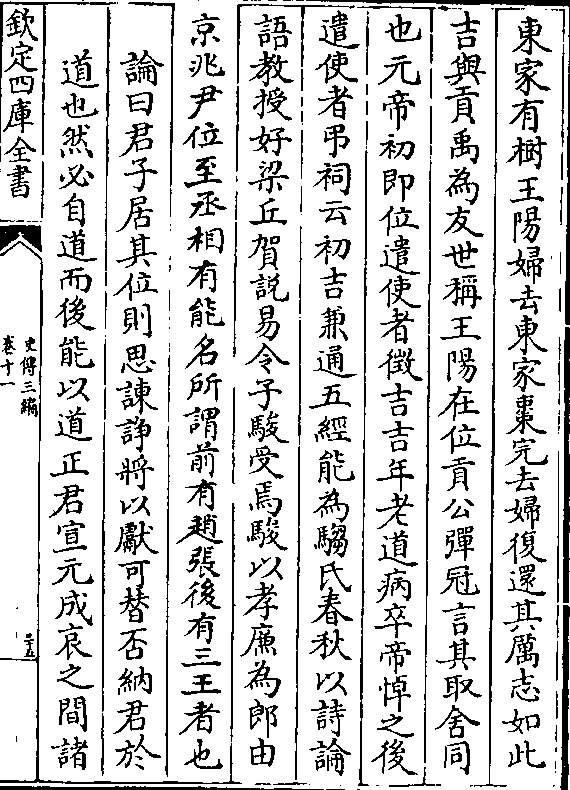 東家有樹王陽婦去東家棗完去婦復還其厲志如此
吉與貢禹為友世稱王陽在位貢公彈冠言其取舍同
也元帝初即位遣使者徴吉吉年老道病卒帝悼之後
遣使者弔祠云初吉兼通五經能為騶氏春秋以詩論
語教授好梁丘賀説易令子駿受焉駿以孝廉為郎由
京兆尹位至丞相有能名所謂前有趙張後有三王者也
論曰君子居其位則思諫諍將以獻可替否納君於
道也然必自道而後能以道正君宣元成哀之間諸
欽定四庫全書
史傳三編
卷十一
二十五